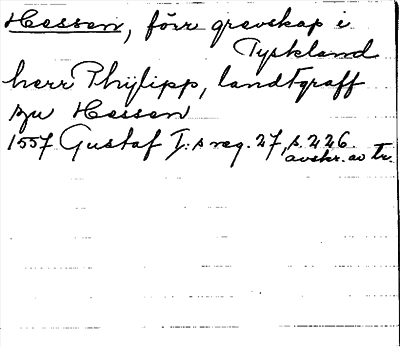 Hessen, förr grevskap i
Tyskland
herr Phylipp, landtgraff
zu Hessen
1557 Gustaf I:s reg. 27, s. 226
avskr. av tr.